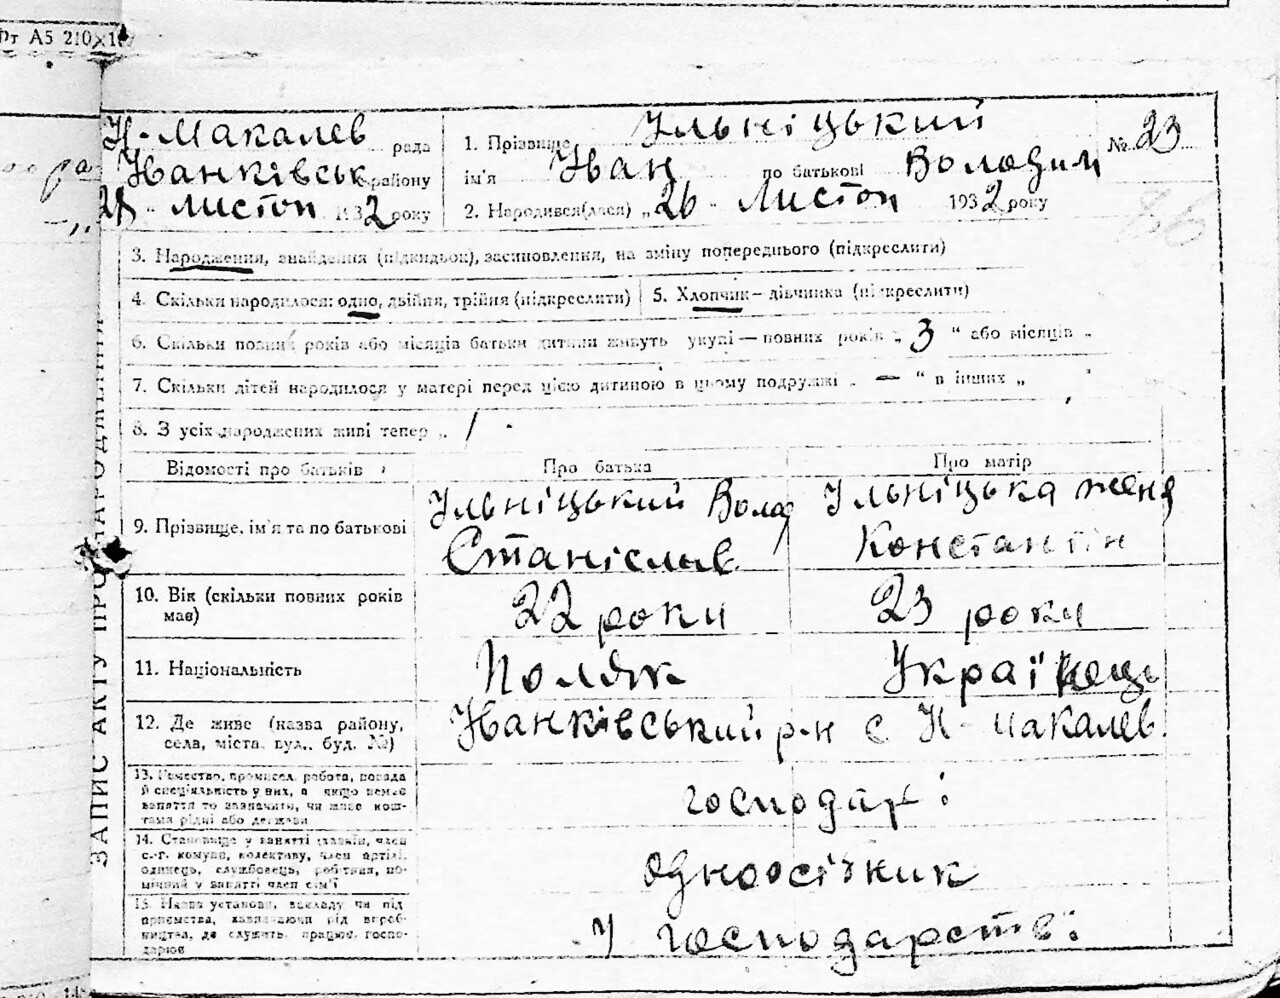 А5 210×
Н-Макалев рада
Нанківськ району
28 " листоп 1932 року
1. Прізвище Ульніцький
№ 23
ім'я Іван по батькові Володим
2. Народився(лася) „ 26 " Листоп 1932 року
3. Народження, знайдення (підкидьок), засиновлення, на зміну попереднього (підкреслити)
4. Скільки народилося: одно, двійня, трійня (підкреслити)
5. Хлопчик – дівчинка (підкреслити)
6. Скільки повних років або місяців батьки дитини живуть укупі — повних років „ 3 " або місяців „
7. Скільки дітей народилося у матері перед цією дитиною в цьому подружжі „ — " в інших „
8. З усіх народжених живі тепер „ /
Відомості про батьків
Про батька
Про матір
9. Прізвище, ім'я та по батькові
Ульніцький Волод
Станіслав
Ульніцька Женя
Константін
10. Вік (скільки повних років має)
22 роки
23 роки
11. Національність
Поляк
Україн
12. Де живе (назва району, села, міста, вул., буд. №)
Нанківський р-н с Н-Макалев
13. робота, посада
й спеціяльність у них, а якщо немає
заняття то зазначити, чи живе кош-
тами рідні або держави
господар і
14. Становище у занятті
с.-г. комуни, колективу, член артілі,
одинець, службовець, робітник, по-
мічний у занятті член сім'ї
одноосібник
15. Назва установи, закладу чи під
приємства, зазначаючи рід вироб-
ництва, де служить, працює, госпо-
дарює
У господарстві
ЗАПИС АКТУ ПРО НАРОДЖЕННЯ